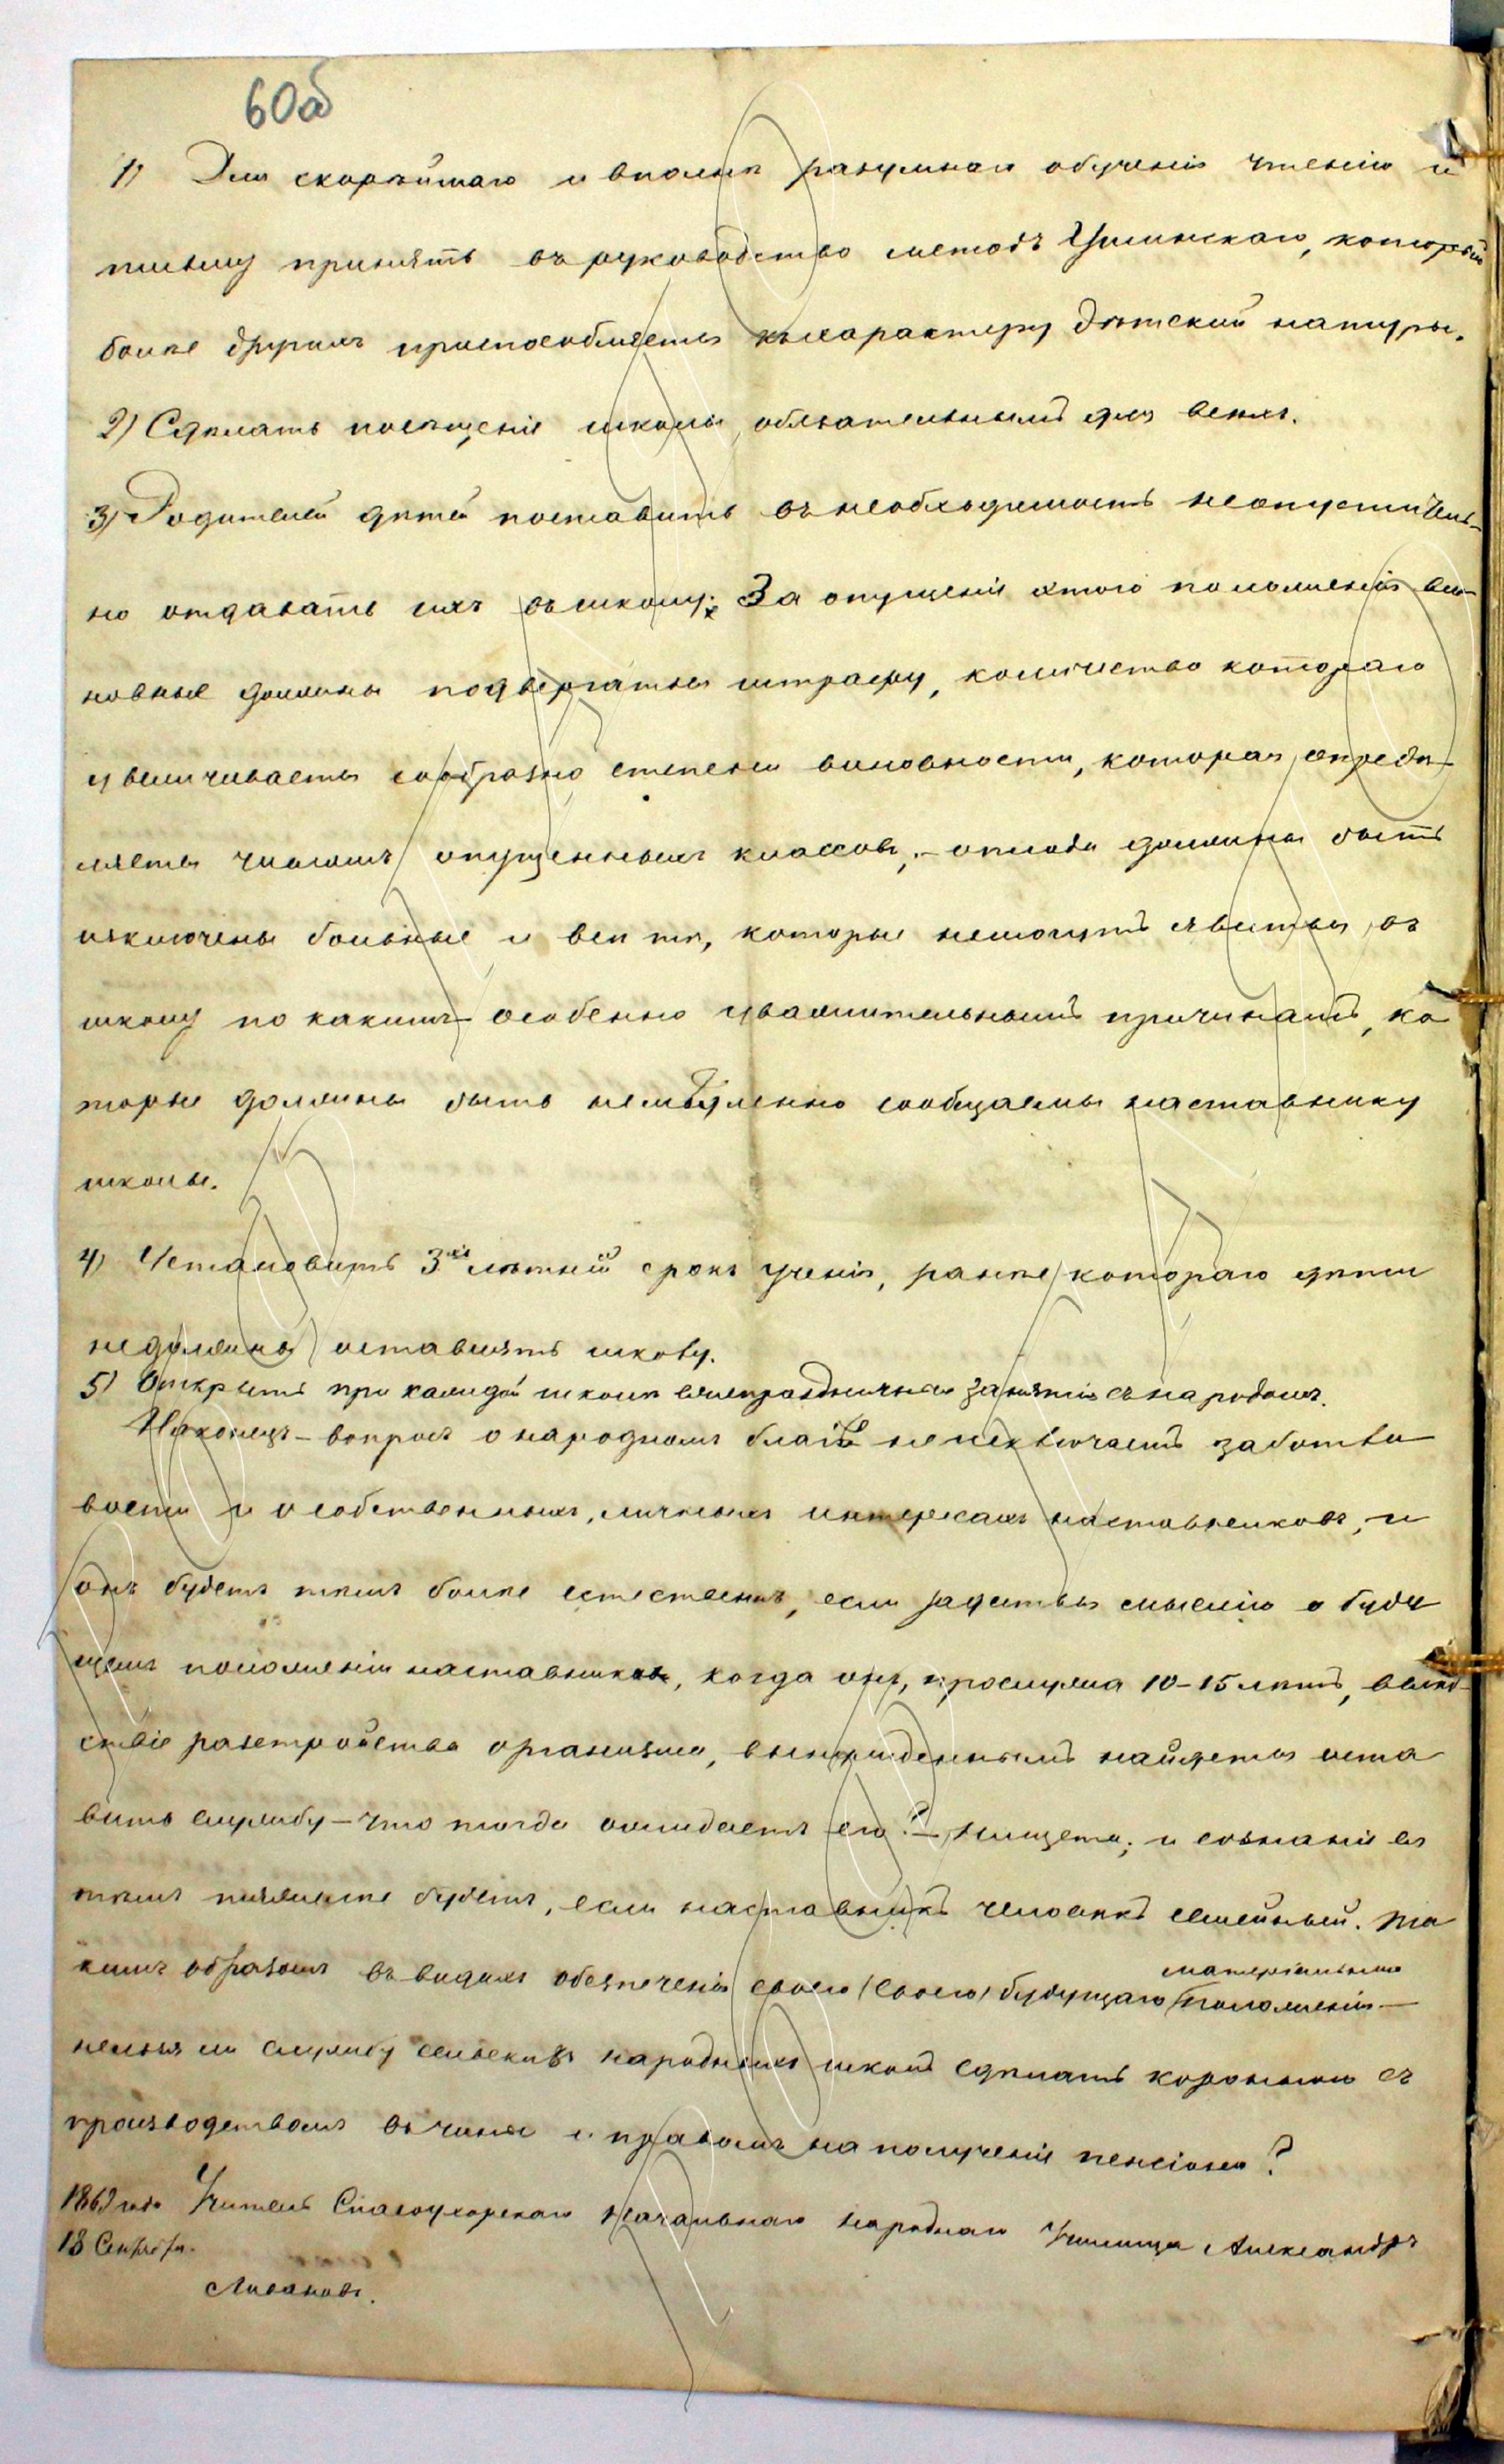 60об
1) Для скорѣйшаго и вполнѣ разумнаго обученія чтенію и
письму принять въ руководство методъ Ушинскаго, который
болѣе другихъ приспособляется къ характеру дѣтской натуры.
2) Сдѣлать посѣщеніе школы обязательнымъ для всѣхъ.
3) Родителей дѣтей поставить въ необходимость неопуститель-
но отдавать ихъ въ школу; За опущеніе этого положенія ви-
новные должны подвергаться штрафу, количество котораго
увеличивается сообразно степени виновности, которая опредѣ-
ляется числомъ опущенныхъ классовъ, - отсюда должны быть
изключены больные и всѣ тѣ, которые немогутъ явиться въ
школу по какимъ - особенно уважительнымъ причинамъ, ко
торые должны быть немедленно сообщаемы наставнику
школы.
4) Установить 3хъ лѣтній срокъ ученія, ранѣе котораго дѣти
недолжны оставлять школу.
5) Открыть при каждой школѣ занятія съ народомъ.
Наконецъ - вопросъ о народномъ благѣ неисключаетъ заботли
вости и о собственныхъ, личныхъ интересахъ наставниковъ, и
онъ будетъ тѣмъ болѣе естественъ, если задаться мыслію о буду
щемъ положеніи наставниковъ, когда онъ, прослужа 10-15 лѣтъ, вслѣд-
ствіе разстройства организма, вынужденнымъ найдется оста
вить службу - что тогда ожидаетъ его? - нищета; и сознаніе ея
тѣмъ тяжелѣе будетъ, если наставникъ человѣкъ семейный. Та
кимъ образомъ въ видахъ обезпеченія своего (своего) будущаго матеріальнаго положенія -
нельзя ли службу сельскихъ народныхъ школъ сдѣлать коронною съ
производствомъ въ чины и правомъ на полученіе пенсіона?
1869 года Учитель Начальнаго народнаго Училища Александръ
18 Сентября.
Ливановъ.